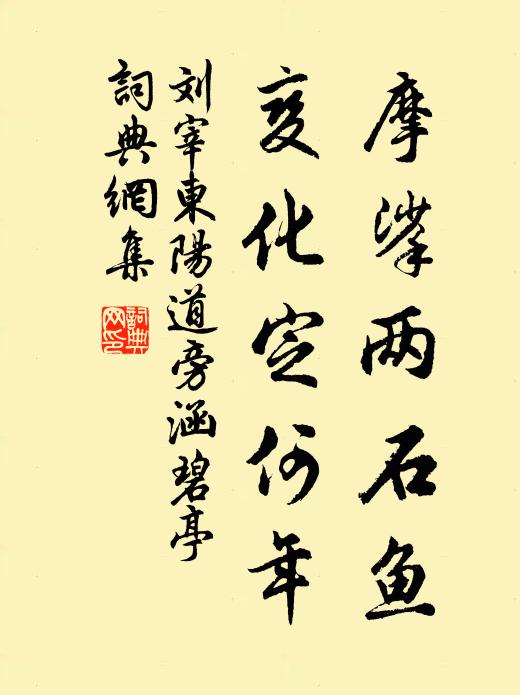 摩挲两石鱼
变化定何年
刘宰東陽道旁涵碧亭
詞典網集
詞典网印